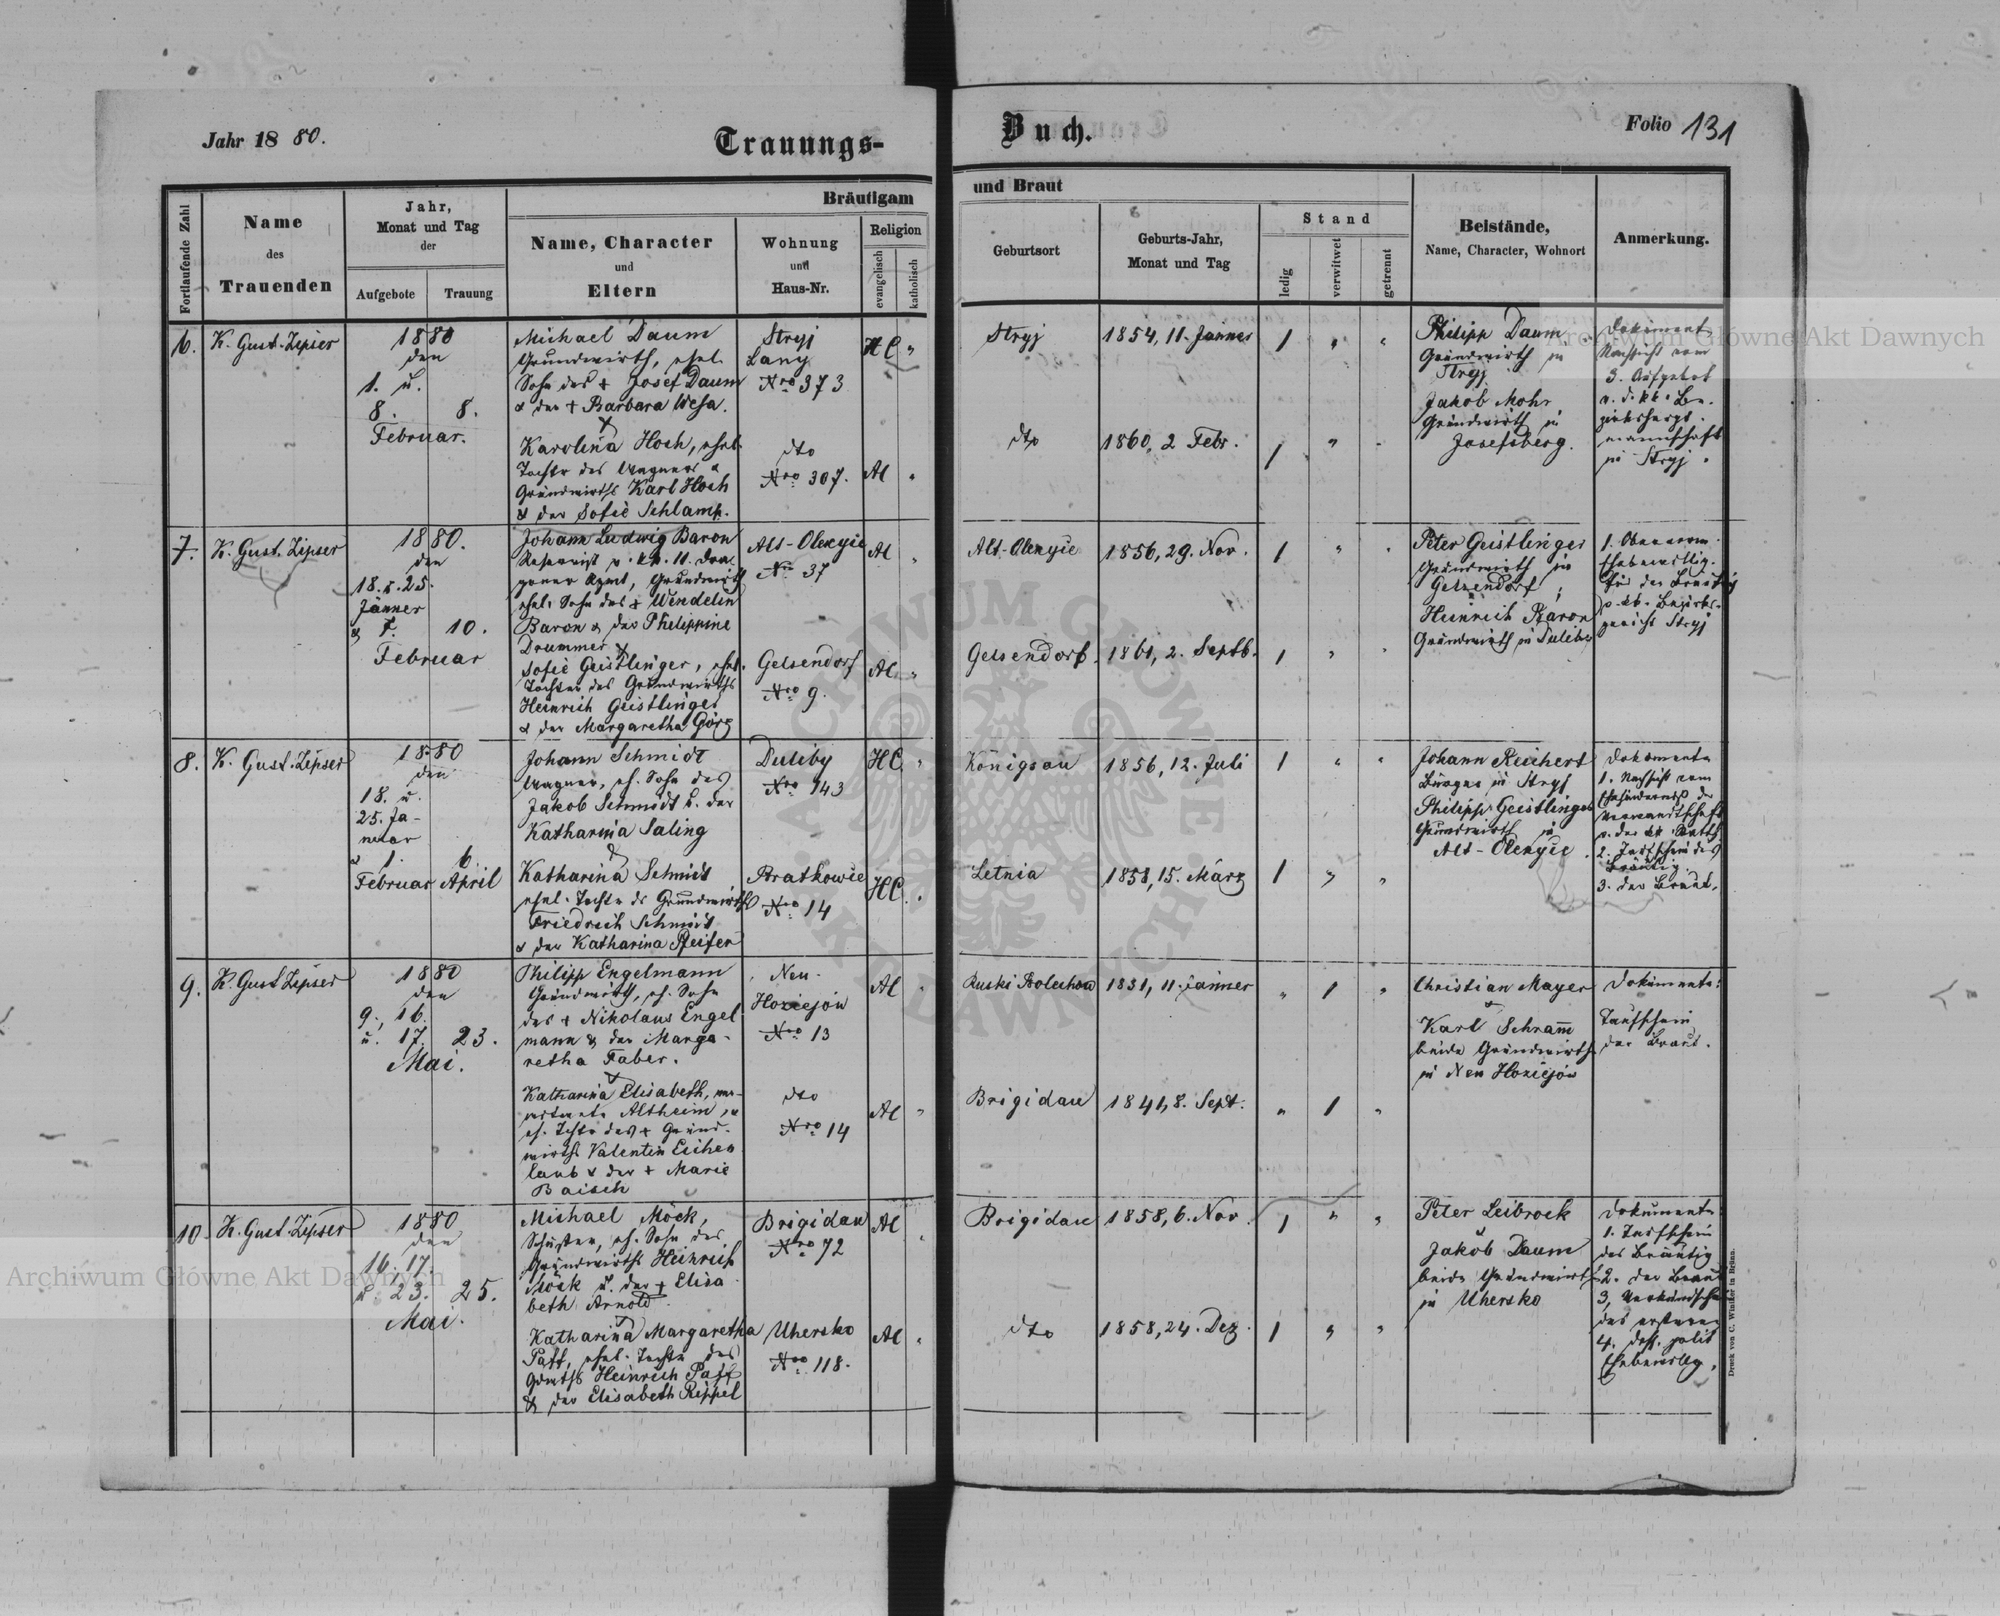 Jahr 1880.
Trauungs-
Buch.
Folio 131
Fortlaufende Zahl
Name
des
Trauenden
Jahr,
Monat und Tag
der
Aufgebote
Trauung
Bräutigam
und Braut
Name, Character
und
Eltern
Wohnung
und
Haus-Nr.
Religion
evangelisch
katholisch
Geburtsort
Geburts-Jahr,
Monat und Tag
Stand
ledig
verwitwet
getrennt
Beistände,
Name, Character, Wohnort
Anmerkung.
6.
K. Gust. Zipser
1880
den
1. u.
8. 8.
Februar.
Michael Daum
Grundwirth, ehel.
Sohn des + Josef Daum
& der + Barbara Wesa.
&
Karolina Hoch, ehel.
Tochter des Wagners &
Grundwirths Karl Hoch
& der Sofie Schlamp.
Stryj
Lany
Nro 373
dto
Nro 307.
HC "
AC "
Stryj
dto
1854, 11. Jänner
1860, 2 Febr.
1 " "
1 " "
Philipp Daum
Grundwirth in
Stryj
Jakob Mohr
Grundwirth in
Josefsberg.
Dokument
Nachsicht vom
3. Aufgebot
v. d. kk. Be-
zirkshaupt-
mannschaft
in Stryj.
7.
K. Gust. Zipser
1880.
den
18. & 25.
Jänner
& 1. 10.
Februar
Johann Ludwig Baron
Reservist v. kk. 11. Dra-
goner Rgmt, Grundwirth
ehel. Sohn des + Wendelin
Baron & der Philippine
Drummer &
Sofie Geistlinger, ehel.
Tochter des Grundwirths
Heinrich Geistlinger
& der Margaretha Görz
Alt-Olexyce
Nro 37
Gelsendorf
Nro 9.
AC "
AC "
Alt-Olexyce
Gelsendorf.
1856, 29. Nov.
1861, 2. Septb.
1 " "
1 " "
Peter Geistlinger
Grundwirth in
Gelsendorf;
Heinrich Baron
Grundwirth in Duliby
Ehebewillig.
für den Bräutig
gericht Stryj
8.
K. Gust. Zipser
1880
den
18. u.
25. Ja-
nuar
& 1. 6.
Februar April
Johann Schmidt
Wagner, eh. Sohn des
Jakob Schmidt u. der
Katharina Saling
&
Katharina Schmidt
ehel. Tochter ds Grundwirths
Friedrich Schmidt
& der Katharina Pfeifer
Duliby
Nro 143
Bratkowce
Nro 14
HC "
HC "
Königsau
Letnia
1856, 12. Juli
1858, 15. März
1 " "
1 " "
Johann Reichert
Bürger in Stryj
Philipp Geistlinger
Grundwirth in
Alt-Olexyce.
Dokumente
1. Nachsicht vom
Ehehinderniß der
Verwandtschaft
2. Taufschein des
Bräutig.
3. der Braut.
9.
K. Gust. Zipser
1880
den
9., 16.
u. 17. 23.
Mai.
Philipp Engelmann
Grundwirth, eh. Sohn
des + Nikolaus Engel
mann & der Marga-
retha Faber.
&
Katharina Elisabeth, ver-
witwete Altheim,
eh. Tochter des + Grund-
wirths Valentin Eichen
laub & der + Marie
Baisch
Neu-
Hoziejów
Nro 13
dto
Nro 14
AC "
AC "
Ruski Bolechow
Brigidau
1831, 11. Jänner
1841, 8. Sept.
" 1 "
" 1 "
Christian Mayer
&
Karl Schram̅
beide Grundwirthe
in Neu Hoziejów
Dokumente:
Taufschein
der Braut.
10.
K. Gust. Zipser
1880
den
16., 17.
u. 23. 25.
Mai.
Michael Möck,
Schuster, eh. Sohn des
Grundwirths Heinrich
Möck u. der + Elisa
beth Arnold.
&
Katharina Margaretha
Paff, ehel. Tochter des
Grdwths Heinrich Paff
& der Elisabeth Rippel
Brigidau
Nro 72
Uhersko
Nro 118.
AC "
AC "
Brigidau
dto
1858, 6. Nov.
1858, 24. Dez.
1 " "
1 " "
Peter Leibrock
u
Jakob Daum
beide Grundwirthe
in Uhersko
Dokumente
1. Taufschein
des Bräutig
2. der Braut
3. Verkündschein
des ersteren
4. dess. polit
Ehebewillg.
Druck von C. Winiker in Brünn.
Archiwum Główne Akt Dawnych
Archiwum Główne Akt Dawnych
ARCHIWUM GŁÓWNE
AKT DAWNYCH